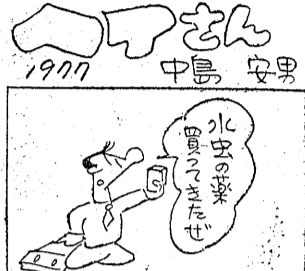 ヘアさん
1977 中島 安男
水虫の薬
買ってきたぜ